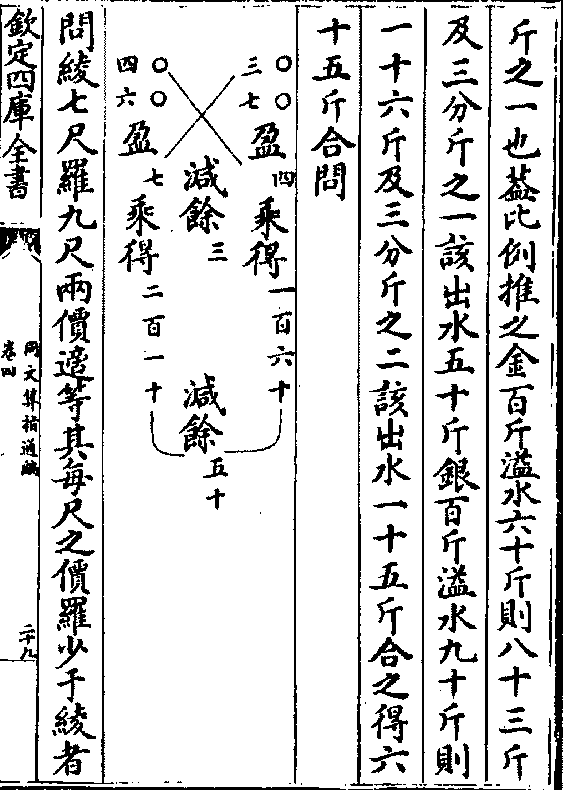 斤之一也葢比例推之金百斤溢水六十斤則八十三斤
及三分斤之一該出水五十斤銀百斤溢水九十斤則
一十六斤及三分斤之二該出水一十五斤合之得六
十五斤合問
三〇
七〇
盈四
乘得一百六十
減餘三
減餘五十
四〇
六〇
盈七
乘得二百一十
問綾七尺羅九尺兩價適等其每尺之價羅少于綾者
欽定四庫全書
同文算指通編
卷四
二十九